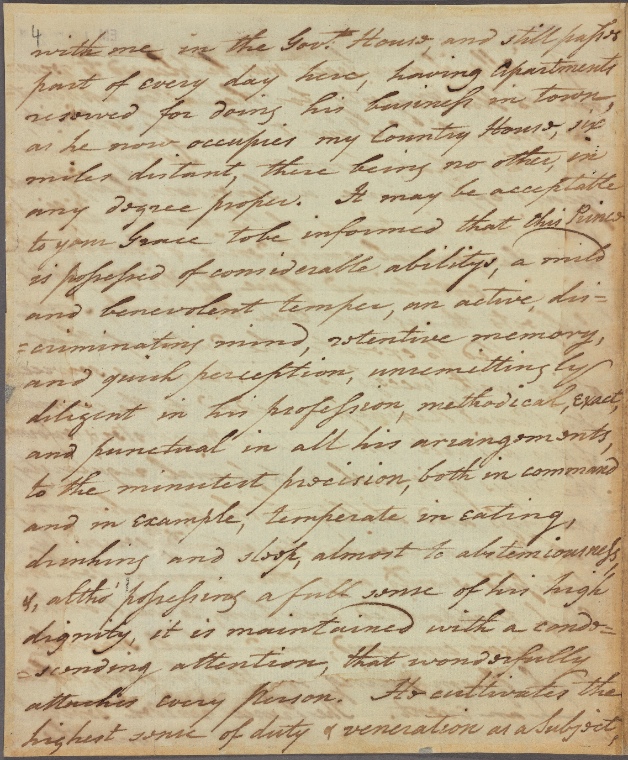 4
with me in the Govt. House, and still passes
part of every day here, having Apartments
reserved for doing his business in town,
as he now occupies my Country House, six
miles distant, there being no other, in
any degree proper. It may be acceptable
to your Grace to be informed that this Prince
is possessed of considerable abilitys, a mild
and benevolent temper, an active, dis=
=criminating mind, retentive memory,
and quick perception, unremittingly
diligent in his profession, methodical, exact,
and punctual in all his arrangements,
to the minutest precision, both in command
and in example, temperate in eating,
drinking and sleep, almost to abstemiousness,
&, altho' possessing a full sense of his high
dignity, it is maintained with a conde=
=scending attention, that wonderfully
attaches every Person. He cultivates the
highest sense of duty & veneration as a Subject,